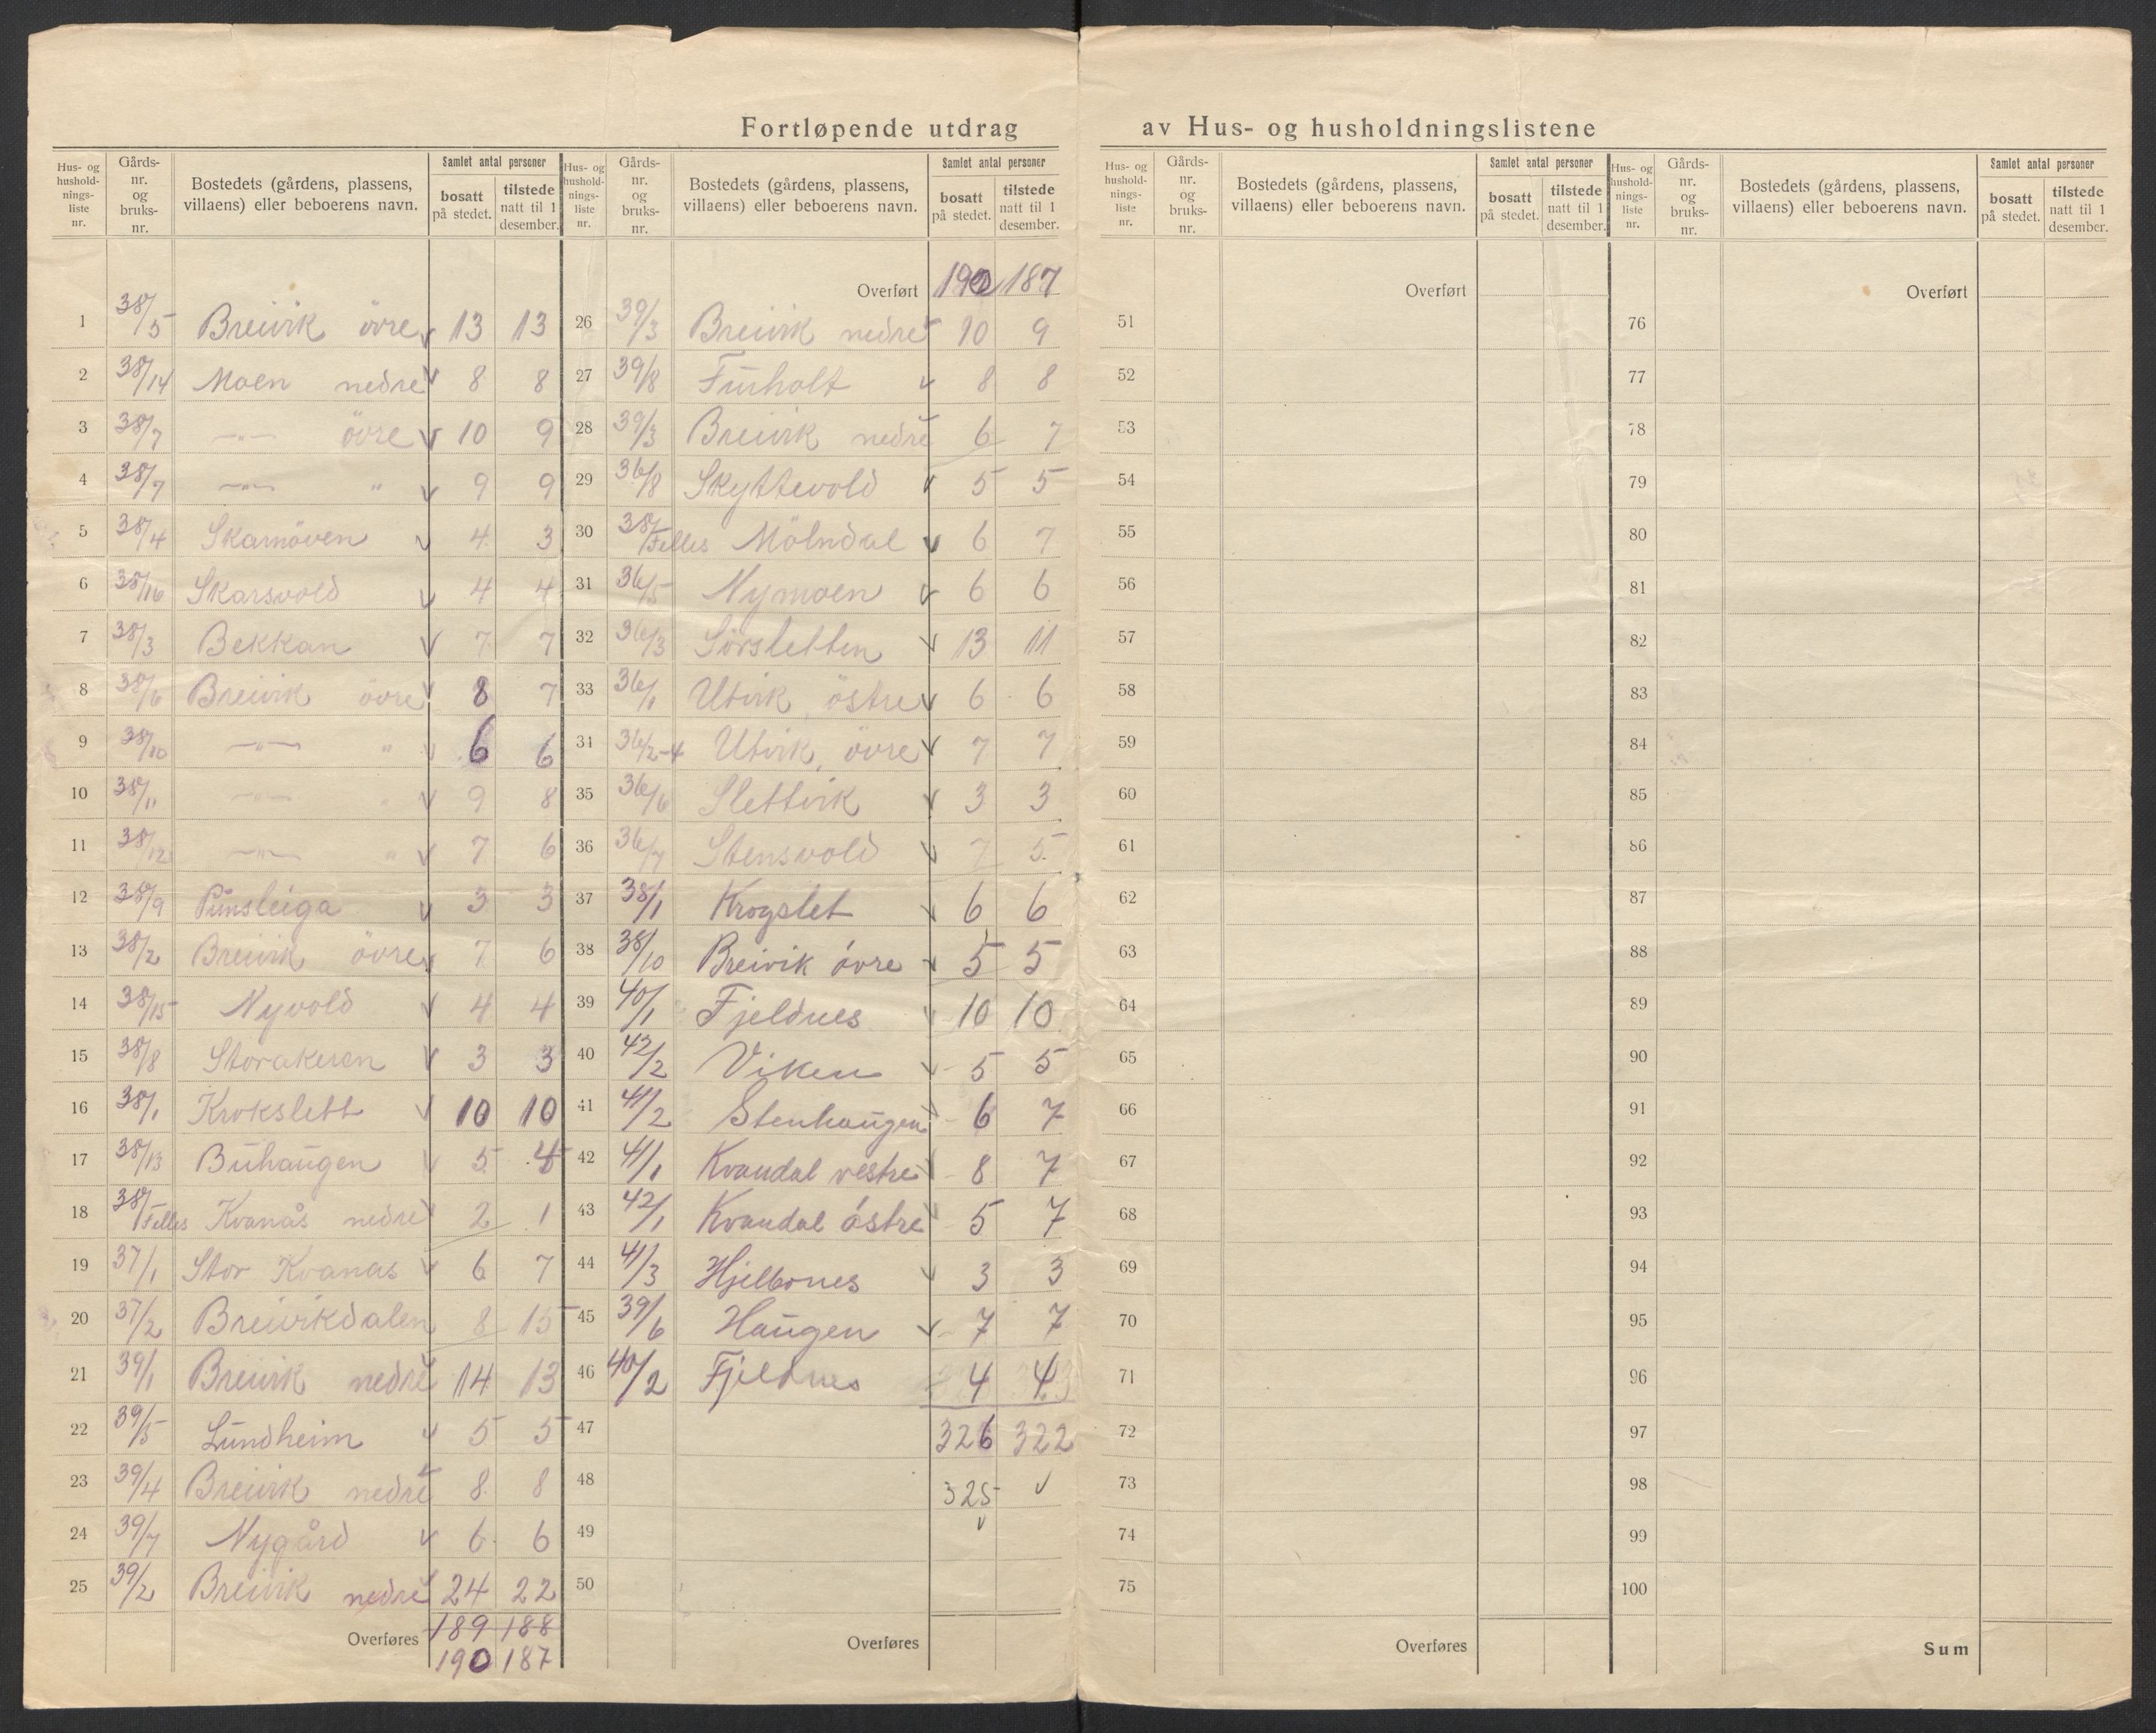 Fortløpende utdrag av Hus- og husholdningslistene
Hus- og hushold-nings-liste nr. | Gårds-nr. og bruks-nr. | Bostedets (gårdens, plassens, villaens) eller beboerens navn. | Samlet antal personer bosatt på stedet. | tilstede natt til 1 desember.
1 38/5 Breivik övre 13 13
2 38/14 Moen nedre 8 8
3 38/7 —"— övre 10 9
4 38/7 —"— " 9 9
5 38/4 Skarmöven 4 3
6 38/16 Skarsvold 4 4
7 38/3 Bekkan 7 7
8 38/6 Breivik övre 8 7
9 38/10 —"— " 6 6
10 38/11 —"— " 9 8
11 38/12 —"— " 7 6
12 38/9 Punsleiga 3 3
13 38/2 Breivik övre 7 6
14 38/15 Nyvold 4 4
15 38/8 Storakeren 3 3
16 38/1 Krokslett 10 10
17 38/13 Buhaugen 5 4
18 38/Felles Kvanås nedre 2 1
19 37/1 Stor Kvanas 6 7
20 37/2 Breivikdalen 8 15
21 39/1 Breivik nedre 14 13
22 39/5 Lundheim 5 5
23 39/4 Breivik nedre 8 8
24 39/7 Nygård 6 6
25 39/2 Breivik nedre 24 22
Overføres 189 188
190 187
Hus- og hushold-nings-liste nr. | Gårds-nr. og bruks-nr. | Bostedets (gårdens, plassens, villaens) eller beboerens navn. | Samlet antal personer bosatt på stedet. | tilstede natt til 1 desember.
Overført 190 187
26 39/3 Breivik nedre 10 9
27 39/8 Furholt 8 8
28 39/3 Breivik nedre 6 7
29 36/8 Skyttevold 5 5
30 38/Felles Mölndal 6 7
31 36/5 Nymoen 6 6
32 36/3 Sörsletten 13 11
33 36/1 Utvik, östre 6 6
34 36/2-4 Utvik, övre 7 7
35 36/6 Slettvik 3 3
36 36/7 Stensvold 7 5
37 38/1 Krogslet 6 6
38 38/10 Breivik óvre 5 5
39 40/1 Fjeldnes 10 10
40 42/2 Viken 5 5
41 41/2 Stenhaugen 6 7
42 41/1 Kvandal vestre 8 7
43 42/1 Kvandal óstre 5 7
44 41/3 Hjelbones 3 3
45 39/6 Haugen 7 7
46 40/2 Fjeldnes 4 4
47 326 322
48 325
49
50
Overføres
Hus- og hushold-nings-liste nr. | Gårds-nr. og bruks-nr. | Bostedets (gårdens, plassens, villaens) eller beboerens navn. | Samlet antal personer bosatt på stedet. | tilstede natt til 1 desember.
Overført
51
52
53
54
55
56
57
58
59
60
61
62
63
64
65
66
67
68
69
70
71
72
73
74
75
Overføres
Hus- og hushold-nings-liste nr. | Gårds-nr. og bruks-nr. | Bostedets (gårdens, plassens, villaens) eller beboerens navn. | Samlet antal personer bosatt på stedet. | tilstede natt til 1 desember.
Overført
76
77
78
79
80
81
82
83
84
85
86
87
88
89
90
91
92
93
94
95
96
97
98
99
100
Sum